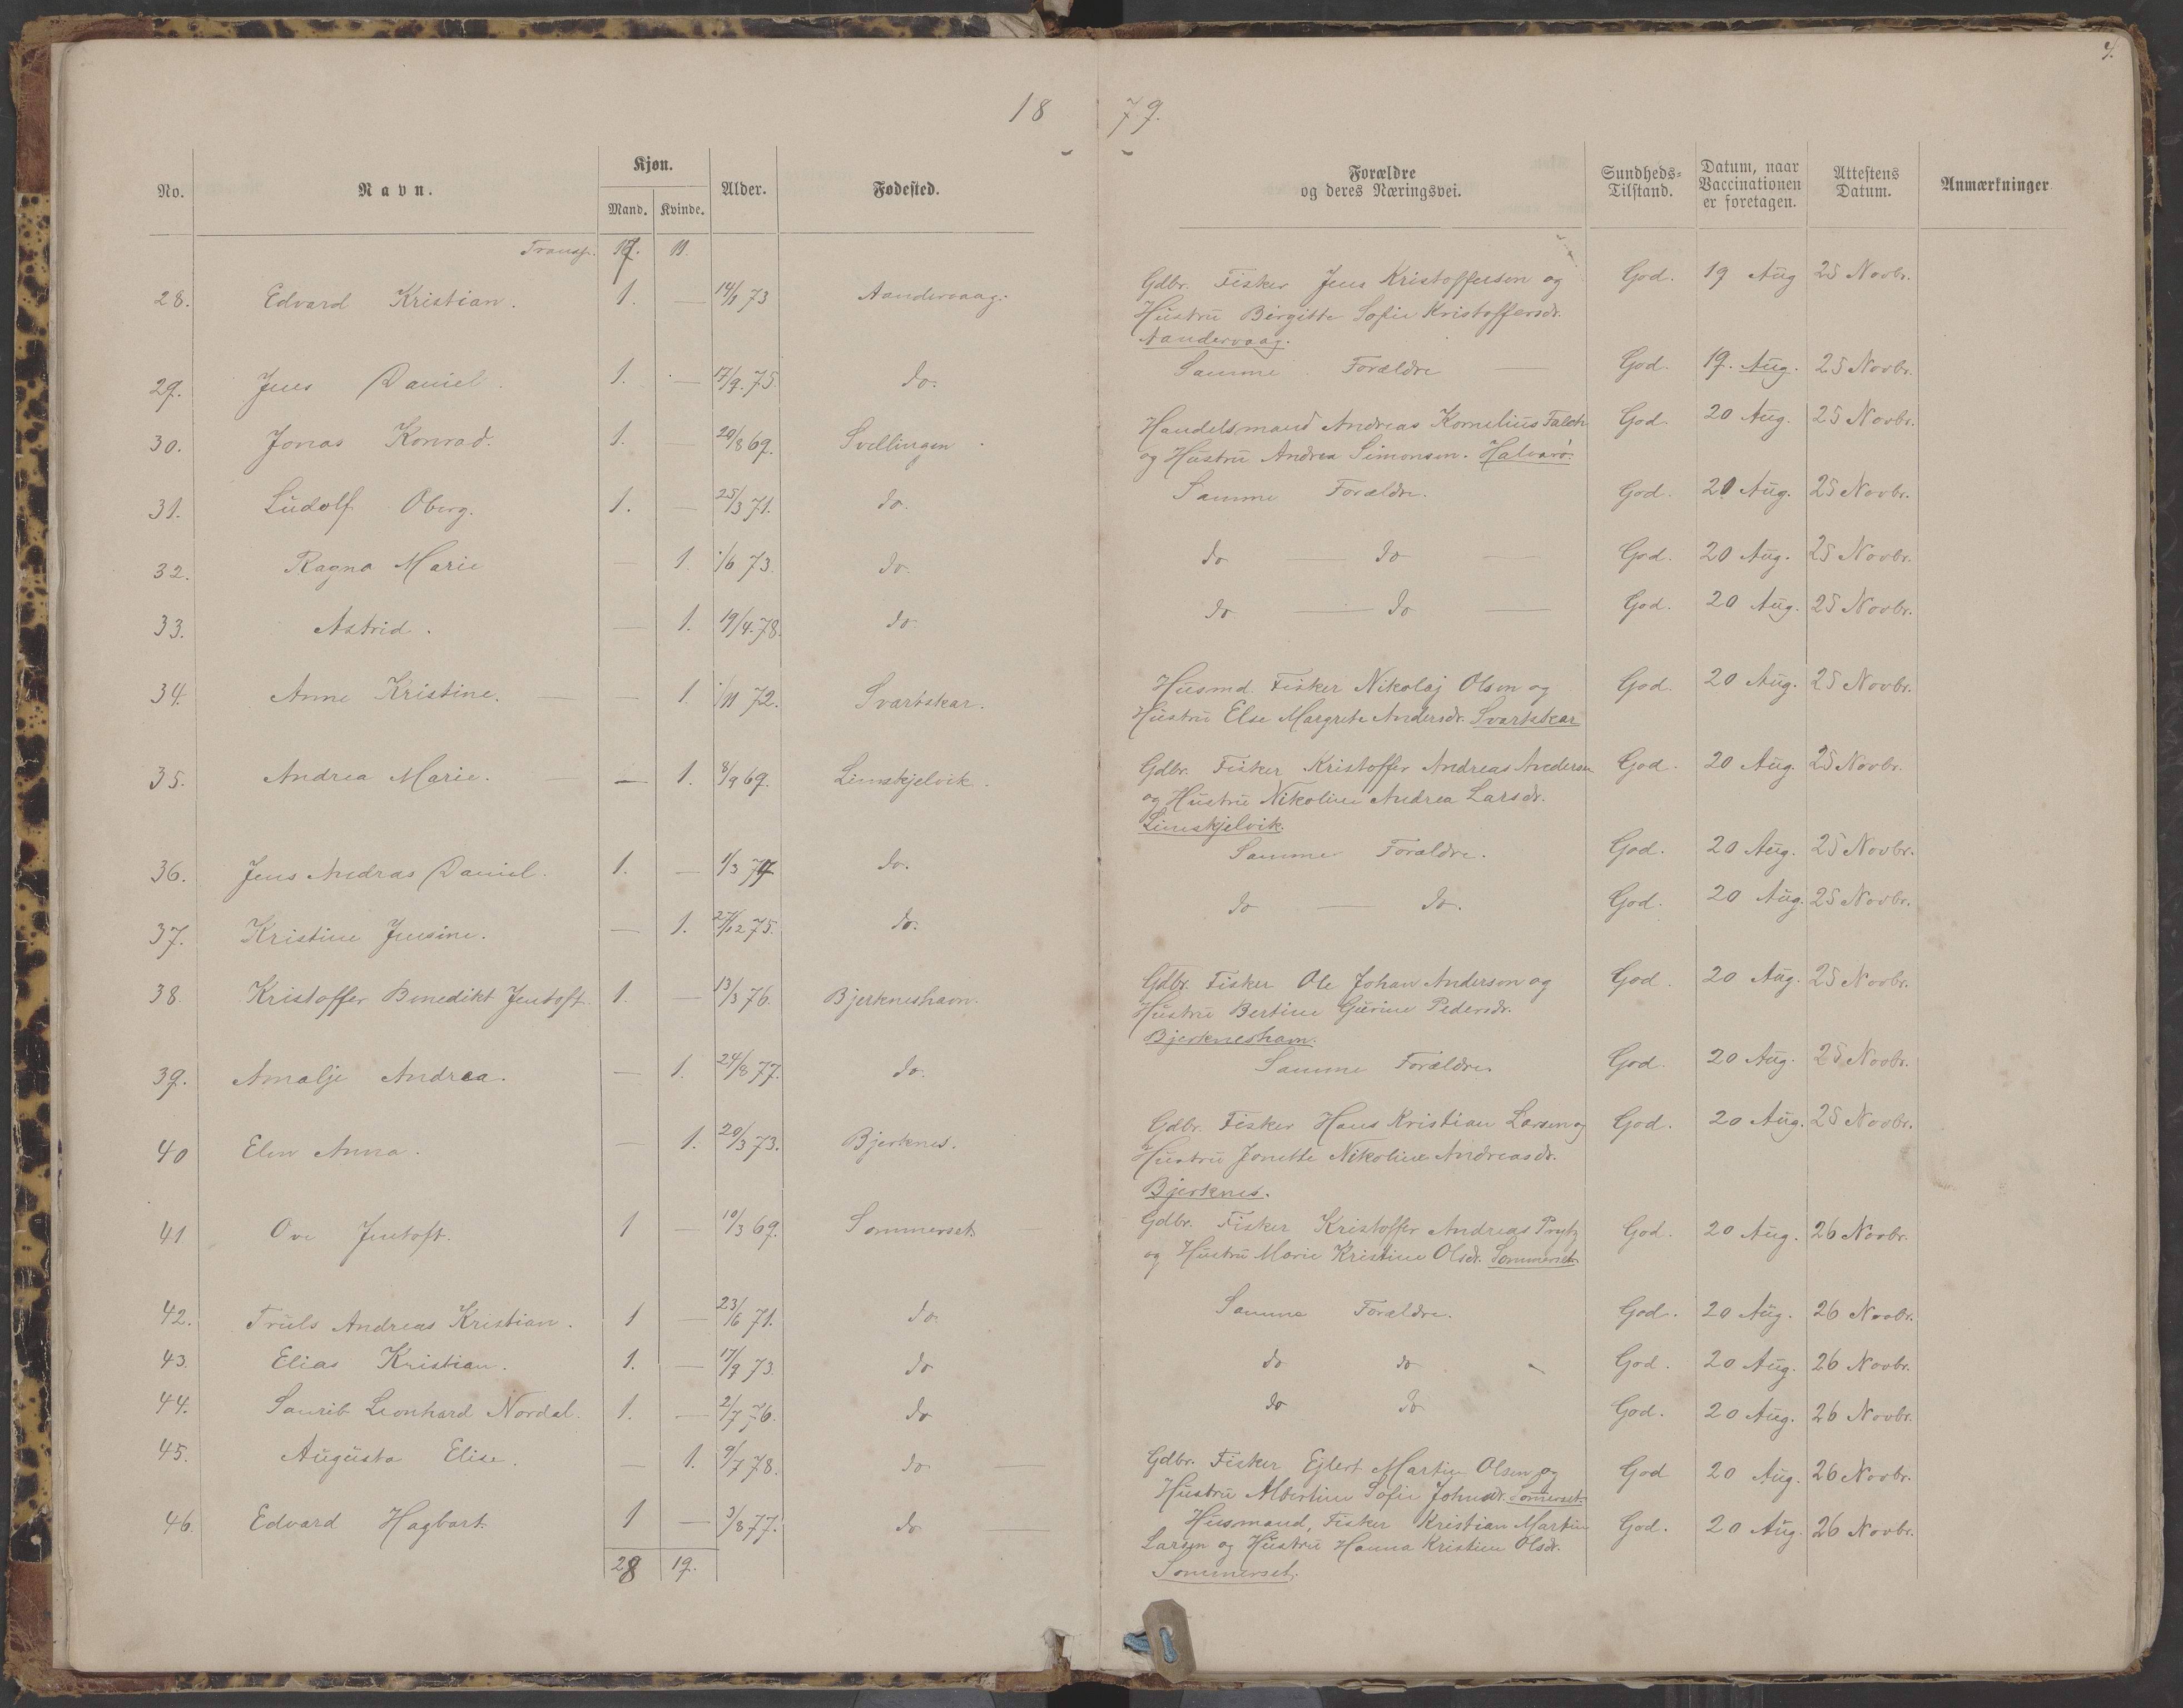 4.
18 79.
No. Navn. Kjøn. Mand. Kvinde. Alder. Fødested. Forældre og deres Næringsvei. Sundheds-Tilstand. Datum, naar Vaccinationen er foretagen. Attestens Datum. Anmærkninger
Transp. 17. 11.
28. Edvard Kristian. 1. — 14/1 73 Aandervaag. Gdbr. Fisker Jens Kristofferson og God. 19 Aug 25 Novbr.
Hustru Birgitte Sofie Kristoffersdr.
Aandervaag.
29. Jens Daniel. 1. — 17/9. 75. do. Samme Forældre — God. 19. Aug. 25 Novbr.
30. Jonas Konrad. 1. — 20/8 69. Svellingen. Handelsmand Andreas Kornelius Falch God. 20 Aug. 25 Novbr.
og Hustru Andrea Simonsen. Halvarö.
31. Ludolf Oberg. 1. — 25/3 71. do. Samme Forældre. God. 20 Aug. 25 Novbr.
32. Ragna Marie — 1. 1/6 73. do. do — do — God. 20 Aug. 25 Novbr.
33. Astrid. — 1. 19/4. 78. do. do — do — God. 20 Aug. 25 Novbr.
34. Anne Kristine. — — 1. 1/11 72. Svartskar. Husmd. Fisker Nikolaj Olson og God. 20 Aug. 25 Novbr.
Hustru Else Margrete Andersdr. Svartskar
35. Andrea Marie. — — 1. 8/9 69. Limskjelvik. Gdbr. Fisker Kristoffer Andreas Anderson God. 20 Aug. 25 Novbr.
og Hustru Nikoline Andrea Larsdr.
Limskjelvik.
36. Jens Andras Daniel. 1. — 1/3 74 do. Samme Forældre. God. 20 Aug. 25 Novbr.
37. Kristine Jensine. — 1. 27/12 75. do. do — do. God. 20 Aug. 25 Novbr.
38. Kristoffer Benedikt Jentoft. 1. — 13/3 76. Bjerkneshavn. Gdbr. Fisker Ole Johan Anderson og God. 20 Aug. 25 Novbr.
Hustru Bertine Gurine Pedersdr.
Bjerkneshavn.
39. Amalje Andrea. — 1. 24/8 77. do. Samme Forældre. God. 20 Aug. 25 Novbr.
40 Elen Anna. — 1. 20/3 73. Bjerknes. Gdbr. Fisker Hans Kristian Larsen og God. 20 Aug. 25 Novbr.
Hustru Jonette Nikoline Andreasdr.
Bjerknes.
41. Ove Jentoft. 1 — 10/3 69. Sommerset. Gdbr. Fisker Kristoffer Andreas Prytz God. 20 Aug. 26 Novbr.
og Hustru Marie Kristine Olsdr. Sommerset
42. Truls Andreas Kristian. 1 — 23/6 71. do. Samme Forældre. God. 20 Aug. 26 Novbr.
43. Elias Kristian. 1. — 17/9 73. do do do God. 20 Aug. 26 Novbr.
44. Laurits Leonhard Nordal. 1. — 2/7 76. do do do God. 20 Aug. 26 Novbr.
45. Augusta Elise. — 1. 9/7 78. do — Gdbr. Fisker Ejlert Martin Olsen og God 20 Aug. 26 Novbr.
Hustru Albertine Sofie Johnsdr. Somerset.
46. Edvard Hagbart. 1 — 3/8 77. do — Husmand, Fisker Kristian Martin God. 20 Aug. 26 Novbr.
Larsen og Hustru Hanna Kristine Olsdr.
Sommerset.
28 19.